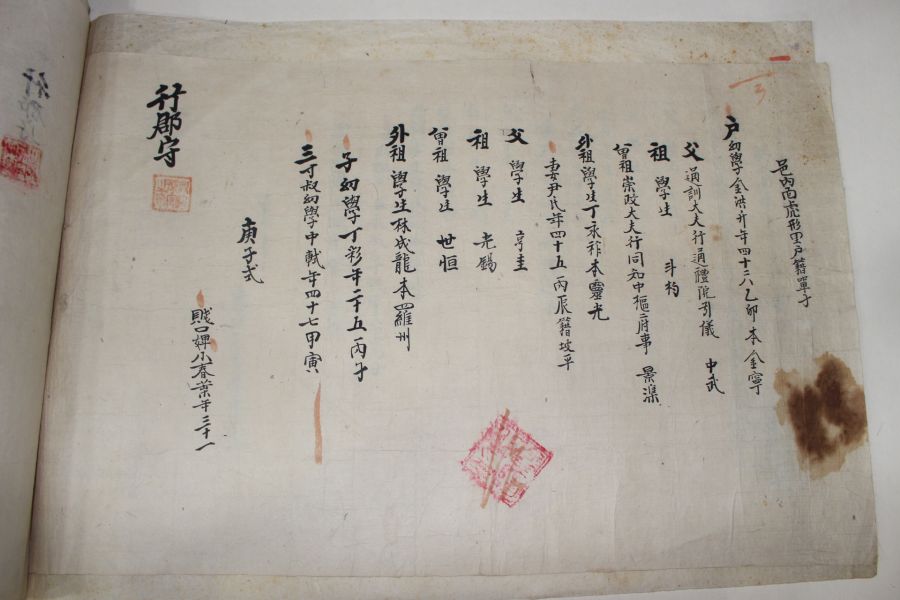 邑內面虎形里戶籍單子
戶幼學金洪升年四十六乙卯本金寧
父通訓大夫行通禮院引儀 中武
祖 學生 斗杓
曾祖崇政大夫行同知中樞府事 景濂
外祖學生丁永祚本靈光
妻尹氏年四十五丙辰籍坡平
父 學生 亨圭
祖 學生 光錫
曾祖 學生 世恒
外祖 學生林成龍本羅州
子幼學丁彩年二十五丙子
三寸叔幼學中軾年四十七甲寅
賤口婢小春葉年三十一
庚子式
行郡守